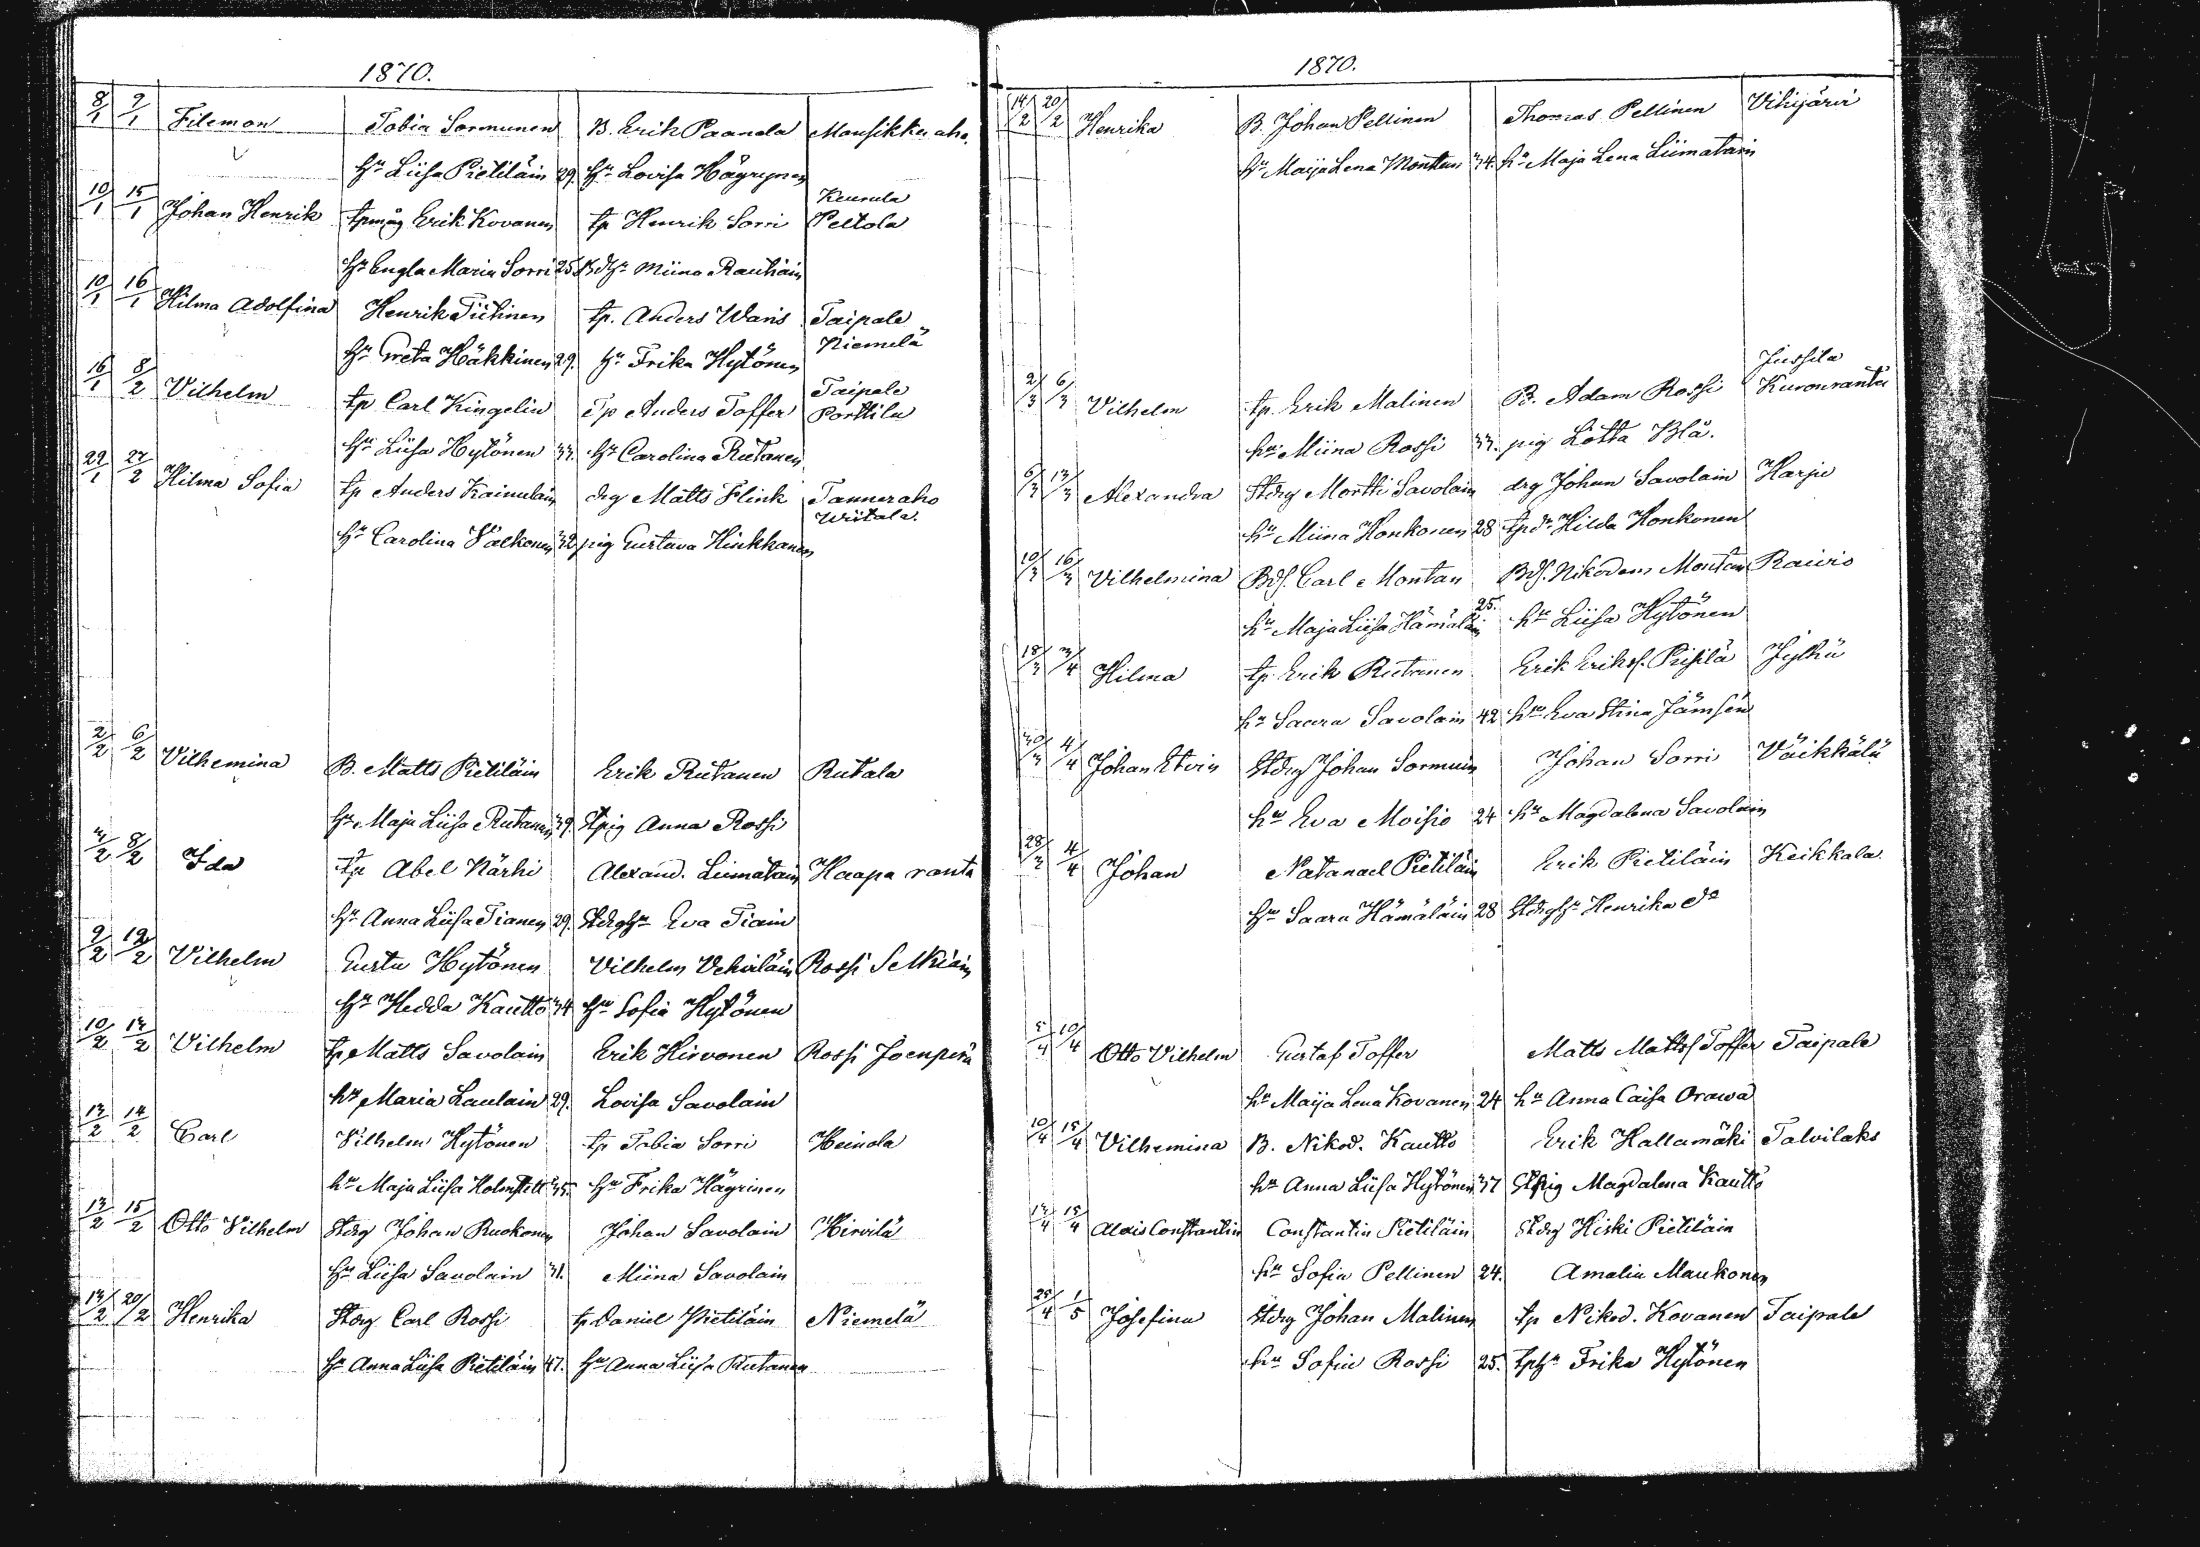 1870.
8/1 9/1 Filemon Tobia Sormunen B. Erik Paanala Mansikka aho.
hu Liisa Pietiläin 29. hu Lovisa Häyrynen
Keurula
10/1 15/1 Johan Henrik tpmåg Erik Kovanen tp Henrik Sorri Peltola
hu Engla Maria Sorri 25 Bdhu Miina Rauhiain
10/1 16/1 Hilma Adolfina Henrik Tiitinen tp. Anders Waris Taipale
hu Greta Häkkinen 29. hu Frika Hytönen Niemelä
Taipale
16/1 8/2 Vilhelm tp Carl Kingelin Tp Anders Toffer Porttila
hu Liisa Hytönen 33. hu Carolina Rutanen
29/1 27/2 Hilma Sofia tp Anders Kainulain drg Matts Flink Tanneraho
Wiitala.
hu Carolina Välkonen 32 pig Gustava Hinkkanen
2/2 6/2 Vilhemina B. Matts Pietiläin Erik Rutanen Rutala
hu Maja Liisa Rutanen 39. Stpig Anna Rossi
3/2 8/2 Ida tp Abel Kärki Alexand. Liimatain Haapa ranta
hu Anna Liisa Tianen 29. Stdrghu Eva Tiain
9/2 12/2 Vilhelm Gusta Hytönen Vilhelm Vehviläin Rossi Selkiäin
hu Hedda Kautto 34 hu Sofia Hytönen
10/2 13/2 Vilhelm tp Matts Savolain Erik Hirvonen Rossi Joenperä
hu Maria Laulain 29. Lovisa Savolain
13/2 14/2 Carl Vilhelm Hytönen tp Tobia Sorri Heinola
hu Maja Liisa 35. hu Frika Häyrinen
13/2 15/2 Otto Vilhelm Stdrg Johan Ruokonen Johan Savolain Hirvilä
hu Liisa Savolain 31. Miina Savolain
13/2 20/2 Henrika Stdrg Carl Rossi tp Daniel Pietiläin Niemelä
hu Anna Liisa Pietiläin 47. hu Anna Liisa Rutanen
1870.
14/2 20/2 Henrika B. Johan Pellinen Thomas Pellinen Vihijärvi
hu Maija Lena Montan 34. hu Maja Lena Liimatain
Jussila
2/3 6/3 Vilhelm tp. Erik Malinen B. Adam Rossi Kuvonranta
hu Miina Rossi 33. pig Lotta Blå.
6/3 13/3 Alexandra Stdrg Martti Savolain drg Johan Savolain Harju
hu Miina Honkonen 28 tpdr Hilda Honkonen
10/3 16/3 Vilhelmina Bds. Carl Montan Bds. Nikodem Montan Raivio
hu Maja Liisa Hämäläin 25. hu Liisa Hytönen
18/3 3/4 Hilma tp Erik Rutanen Erik Eriks. Piisilä Jylhä
hu Saara Savolain 42 hu Eva Stina Jämsén
30/3 4/4 Johan Etvin Stdrg Johan Sormuin Johan Sorri Väikkälä
hu Eva Moisio 24 hu Magdalena Savolain
28/3 4/4 Johan Natanael Pietiläin Erik Pietiläin Keikkala.
hu Saara Hämäläin 28 Stdrghu Henrika do
5/4 10/4 Otto Vilhelm Gustaf Toffer Matts Matts Toffer Taipale
hu Maija Lena Kovanen 24 hu Anna Caisa Orawa
10/4 15/4 Vilhemina B. Nikod. Kautto Erik Hallamäki Talvilaks
hu Anna Liisa Hytönen 37 Stpig Magdalena Kautto
13/4 15/4 Alexis Constantin Constantin Pietiläin Stdrg Hiski Pietiläin
hu Sofia Pellinen 24. Amalia Maukonen
25/4 1/5 Josefina Stdrg Johan Malinen tp Nikod. Kovanen Taipale
hu Sofia Rossi 25. tphu Frika Hytönen